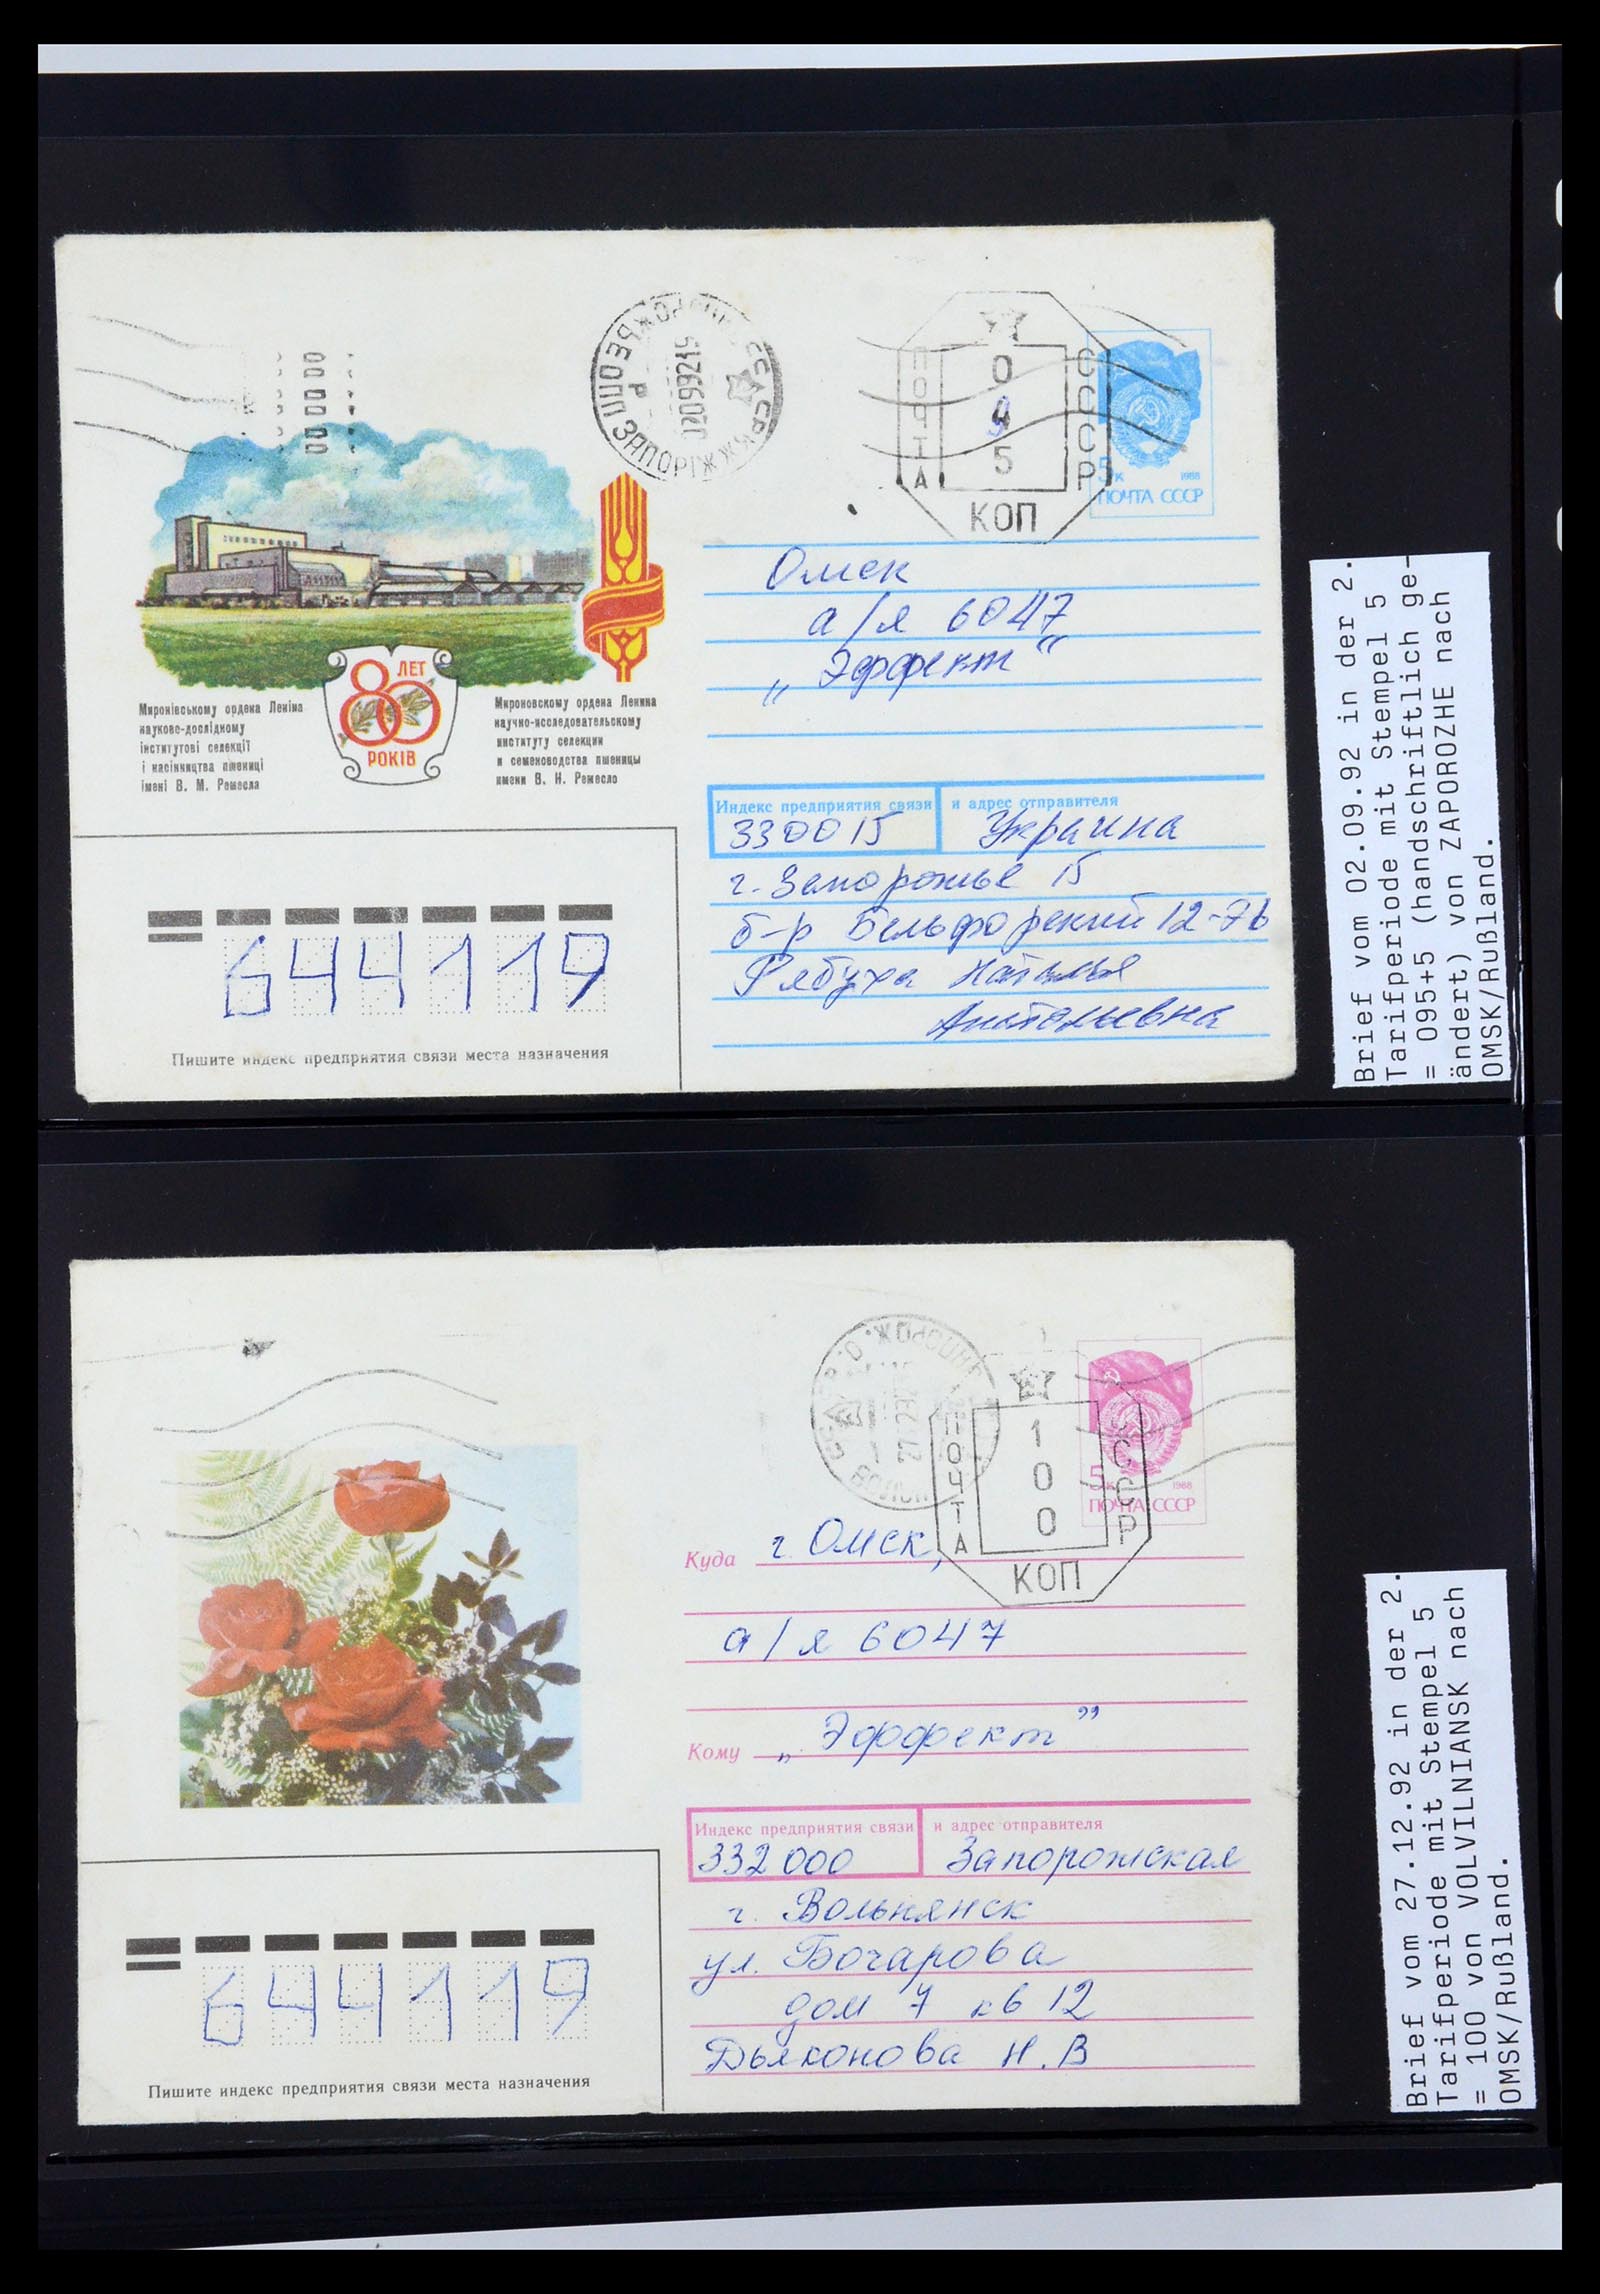 ПОЧТА
СССР
0
4
5
КОП
ЗАПОРІЖЖЯ
020992
5к
1988
ПОЧТА СССР
80
ЛЕТ
РОКІВ
Миронівському ордена Леніна
науково-дослідному
інститутові селекції
і насінництва пшениці
імені В. М. Ремесла
Мироновскому ордена Ленина
научно-исследовательскому
институту селекции
и семеноводства пшеницы
имени В. Н. Ремесло
Омск
а/я 6047
„Эффект“
Индекс предприятия связи
и адрес отправителя
330015
Украина
г. Запорожье 15
б-р Бельфорский 12-76
Рябуха Наталья
Анатольевна
644119
Пишите индекс предприятия связи места назначения
Brief vom 02.09.92 in der 2.
Tarifperiode mit Stempel 5
= 095+5 (handschriftlich ge-
ändert) von ZAPOROZHE nach
OMSK/Rußland.
ПОЧТА
СССР
1
0
0
КОП
5к
1988
ПОЧТА СССР
Куда г. Омск,
а/я 6047
Кому „Эффект”
Индекс предприятия связи
и адрес отправителя
332000
Запорожская
г. Вольнянск
ул. Бочарова
дом 7 кв 12
Дьяконова Н.В
644119
Пишите индекс предприятия связи места назначения
Brief vom 27.12.92 in der 2.
Tarifperiode mit Stempel 5
= 100 von VOLVILNIANSK nach
OMSK/Rußland.